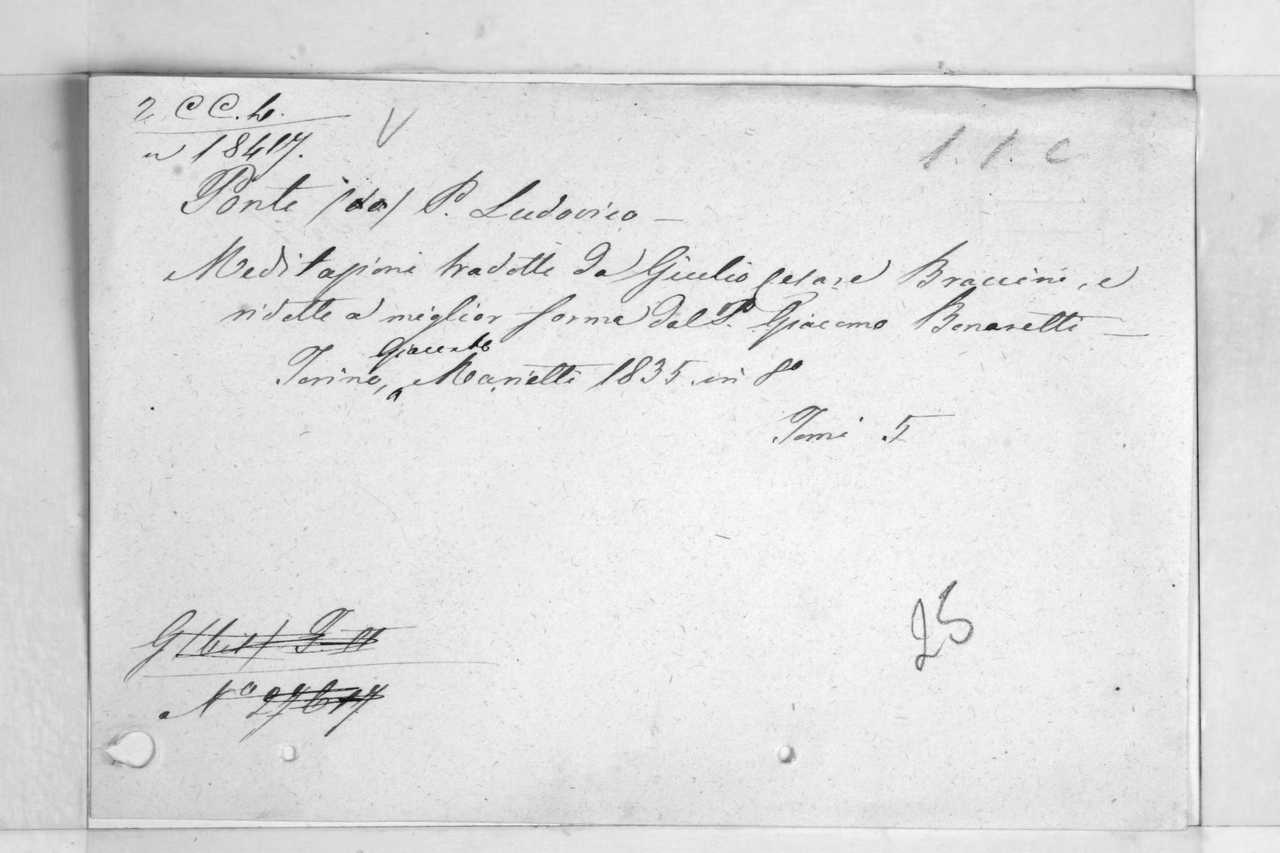 2 C C. L.
V
1. 1. C
n 18417.
Ponte (da) P. Ludovico —
Meditazioni tradotte da Giulio Cesare Braccini, e
ridotte a miglior forma dal P. Giacomo Bonaretti —
Giacinto
Torino, Marietti 1835 in 8º
Tomi 5
25
Nº